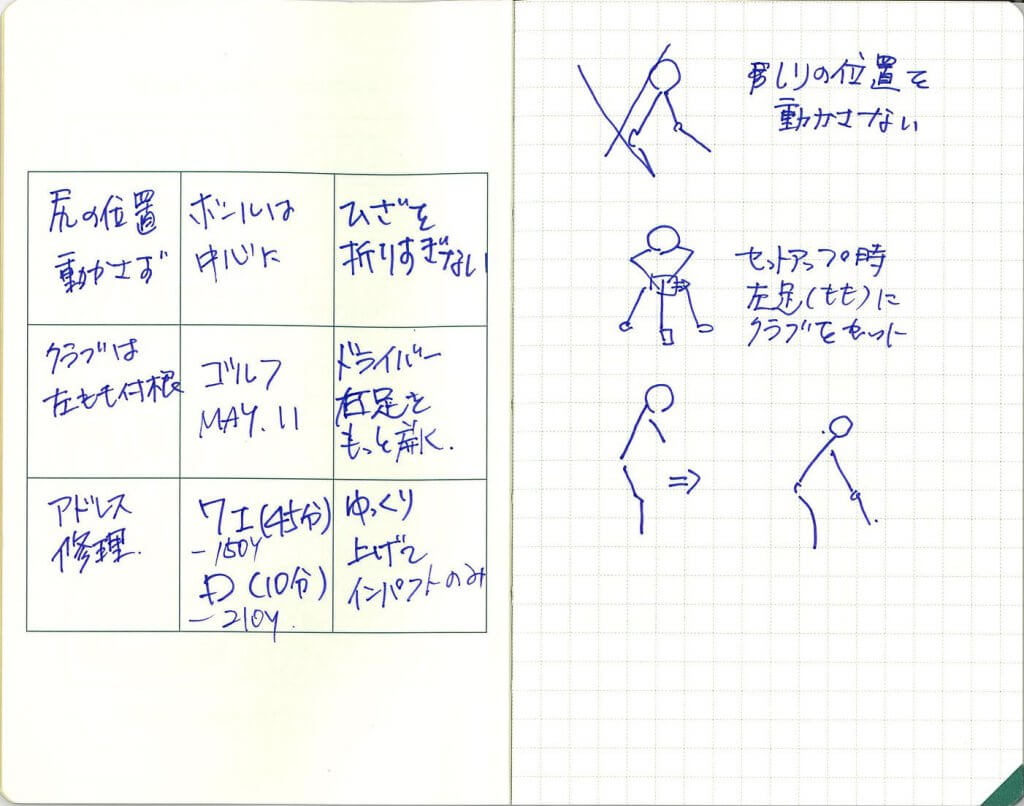 尻の位置
動かさず
ボールは
中心に
ひざを
折りすぎない
クラブは
左もも付根
ゴルフ
MAY.11
ドライバー
右足を
もっと開く.
アドレス
修理.
7I(45分)
-150Y
D(10分)
-210Y.
ゆっくり
上げて
インパクトのみ
おしりの位置を
動かさない
セットアップ時
左足(もも)に
クラブをセット
⇒